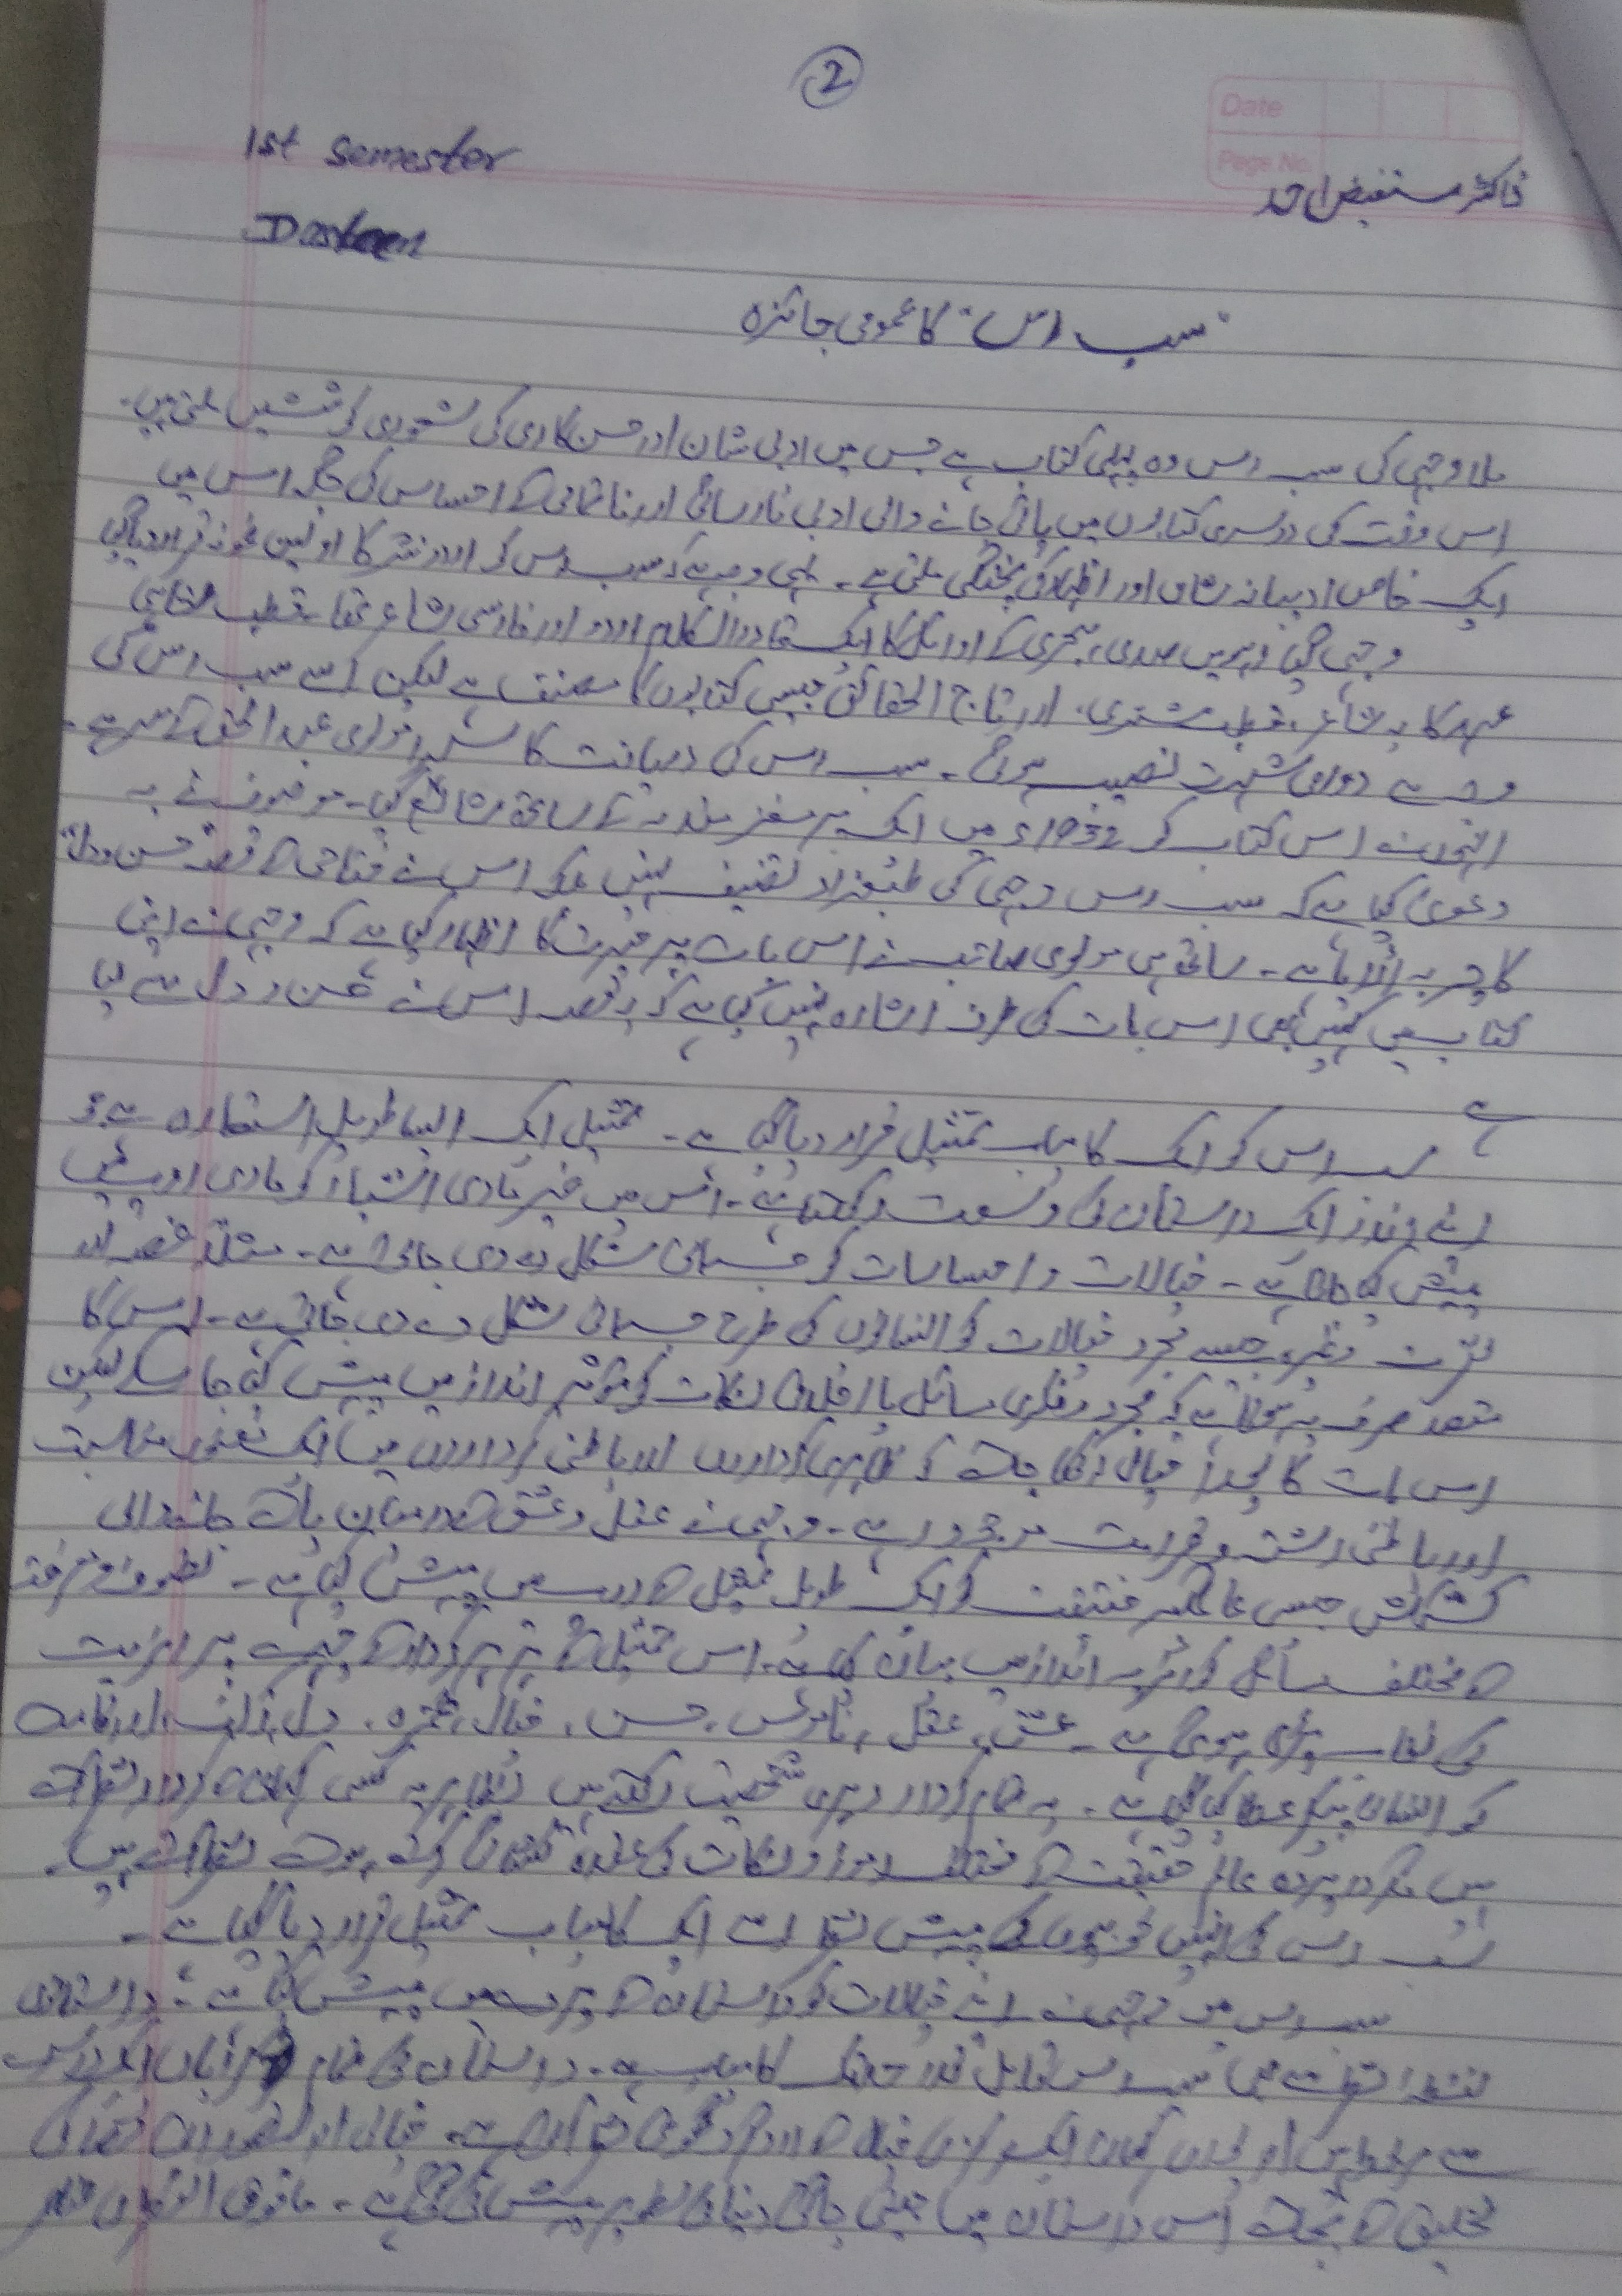 2
Date
Page No.
1st Semester
ڈاکٹر مستفیض احد
Dastaan
"سب رس" کا عمومی جائزہ
ملا وجہی کی سب رس وہ پہلی کتاب ہے جس میں ادبی شان اور حسن کاری کی شعوری کوششیں ملتی ہیں۔
اس وقت کی دوسری کتابوں میں پائی جانے والی ادبی نارسائی اور ناتمامی کے احساس کی جگہ اس میں
ایک خاص ادیبانہ شان اور اظہار کی پختگی ملتی ہے۔ یہی وجہ ہے کہ سب رس کو اردو نثر کا اولین نمونہ قرار دیا گیا
وجہی گیارہویں صدی ہجری کے اوائل کا ایک قادر الکلام اردو اور فارسی شاعر تھا۔ قطب شاہی
عہد کا یہ شاعر، قطب مشتری، اور تاج الحقائق جیسی کتابوں کا مصنف ہے لیکن اسے سب رس کی
وجہ سے دوامی شہرت نصیب ہوئی۔ سب رس کی دریافت کا سہرا مولوی عبدالحق کے سر ہے۔
انہوں نے اس کتاب کو 1932ء میں ایک پر مغز مقدمہ کے ساتھ شائع کیا۔ موصوف نے یہ
دعویٰ کیا ہے کہ سب رس وجہی کی طبعزاد تصنیف نہیں بلکہ اس نے فتاحی کے قصہ حسن و دل
کا چربہ اڑایا ہے۔ ساتھ ہی مولوی صاحب نے اس بات پر حیرت کا اظہار کیا ہے کہ وجہی نے اپنی
کتاب میں کہیں بھی اس بات کی طرف اشارہ نہیں کیا ہے کہ یہ قصہ اس نے حسن و دل سے لیا
ہے
سب رس کو ایک کامیاب تمثیل قرار دیا گیا ہے۔ تمثیل ایک ایسا طویل استعارہ ہے جو
اپنے اندر ایک داستان کی وسعت رکھتا ہے۔ اس میں غیر مادی اشیاء کو مادی روپ میں
پیش کیا جاتا ہے۔ خیالات و احساسات کو جسمانی شکل دے دی جاتی ہے۔ مثلاً غصہ اور
وغیرہ جیسے مجرد خیالات کو انسانوں کی طرح جسمانی شکل دے دی جاتی ہے۔ اس کا
مقصد صرف یہ ہوتا ہے کہ مجرد و فکری مسائل یا اخلاقی نکات کو مؤثر انداز میں پیش کیا جا سکے لیکن
اس بات کا پورا خیال رکھا جائے کہ ظاہری کرداروں اور باطنی کرداروں میں ایک معنوی مناسبت
اور باطنی رشتہ و قرابت موجود رہے۔ وجہی نے عقل و عشق کے درمیان پائی جانے والی
کشمکش جیسی عالمگیر حقیقت کو ایک طویل تمثیل کے روپ میں پیش کیا ہے۔ تصوف و معرفت
کے مختلف مسائل کو انداز میں بیان کیا ہے۔ اس تمثیل کے ہر ہر کردار کے چہرے پر رمزیت
کی نقاب پڑی ہوئی ہے۔ عشق، عقل، ناموس، حسن، خیال، غمزہ، دل، زلف، اور قامت
کو انسانی پیکر عطا کیا گیا ہے۔ یہ تمام کردار دوہری شخصیت رکھتے ہیں بظاہر یہ کسی کہانی کے کردار نظر آتے
ہیں مگر در پردہ عالم حقیقت کے مختلف رموز و نکات کی عقدہ کشائی کرتے ہوئے نظر آتے ہیں۔
سب رس کی انہیں خوبیوں کے پیش نظر اسے ایک کامیاب تمثیل قرار دیا گیا ہے۔
سب رس میں وجہی نے اپنے خیالات کو داستان کے پردے میں پیش کیا ہے۔ داستانوی
نقطہ نظر سے بھی سب رس قابل قدر حد تک کامیاب ہے۔ داستان کی تمام کڑیاں ایک دوسرے
سے مربوط ہیں اور پوری کہانی ایک مرکزی خیال کے ارد گرد گھومتی نظر آتی ہے۔ خیالی اور تصوراتی فضا کی
تخلیق کے بجائے اس داستان میں جیتی جاگتی دنیا کی تصویر پیش کی گئی ہے۔ مافوق الفطری عناصر